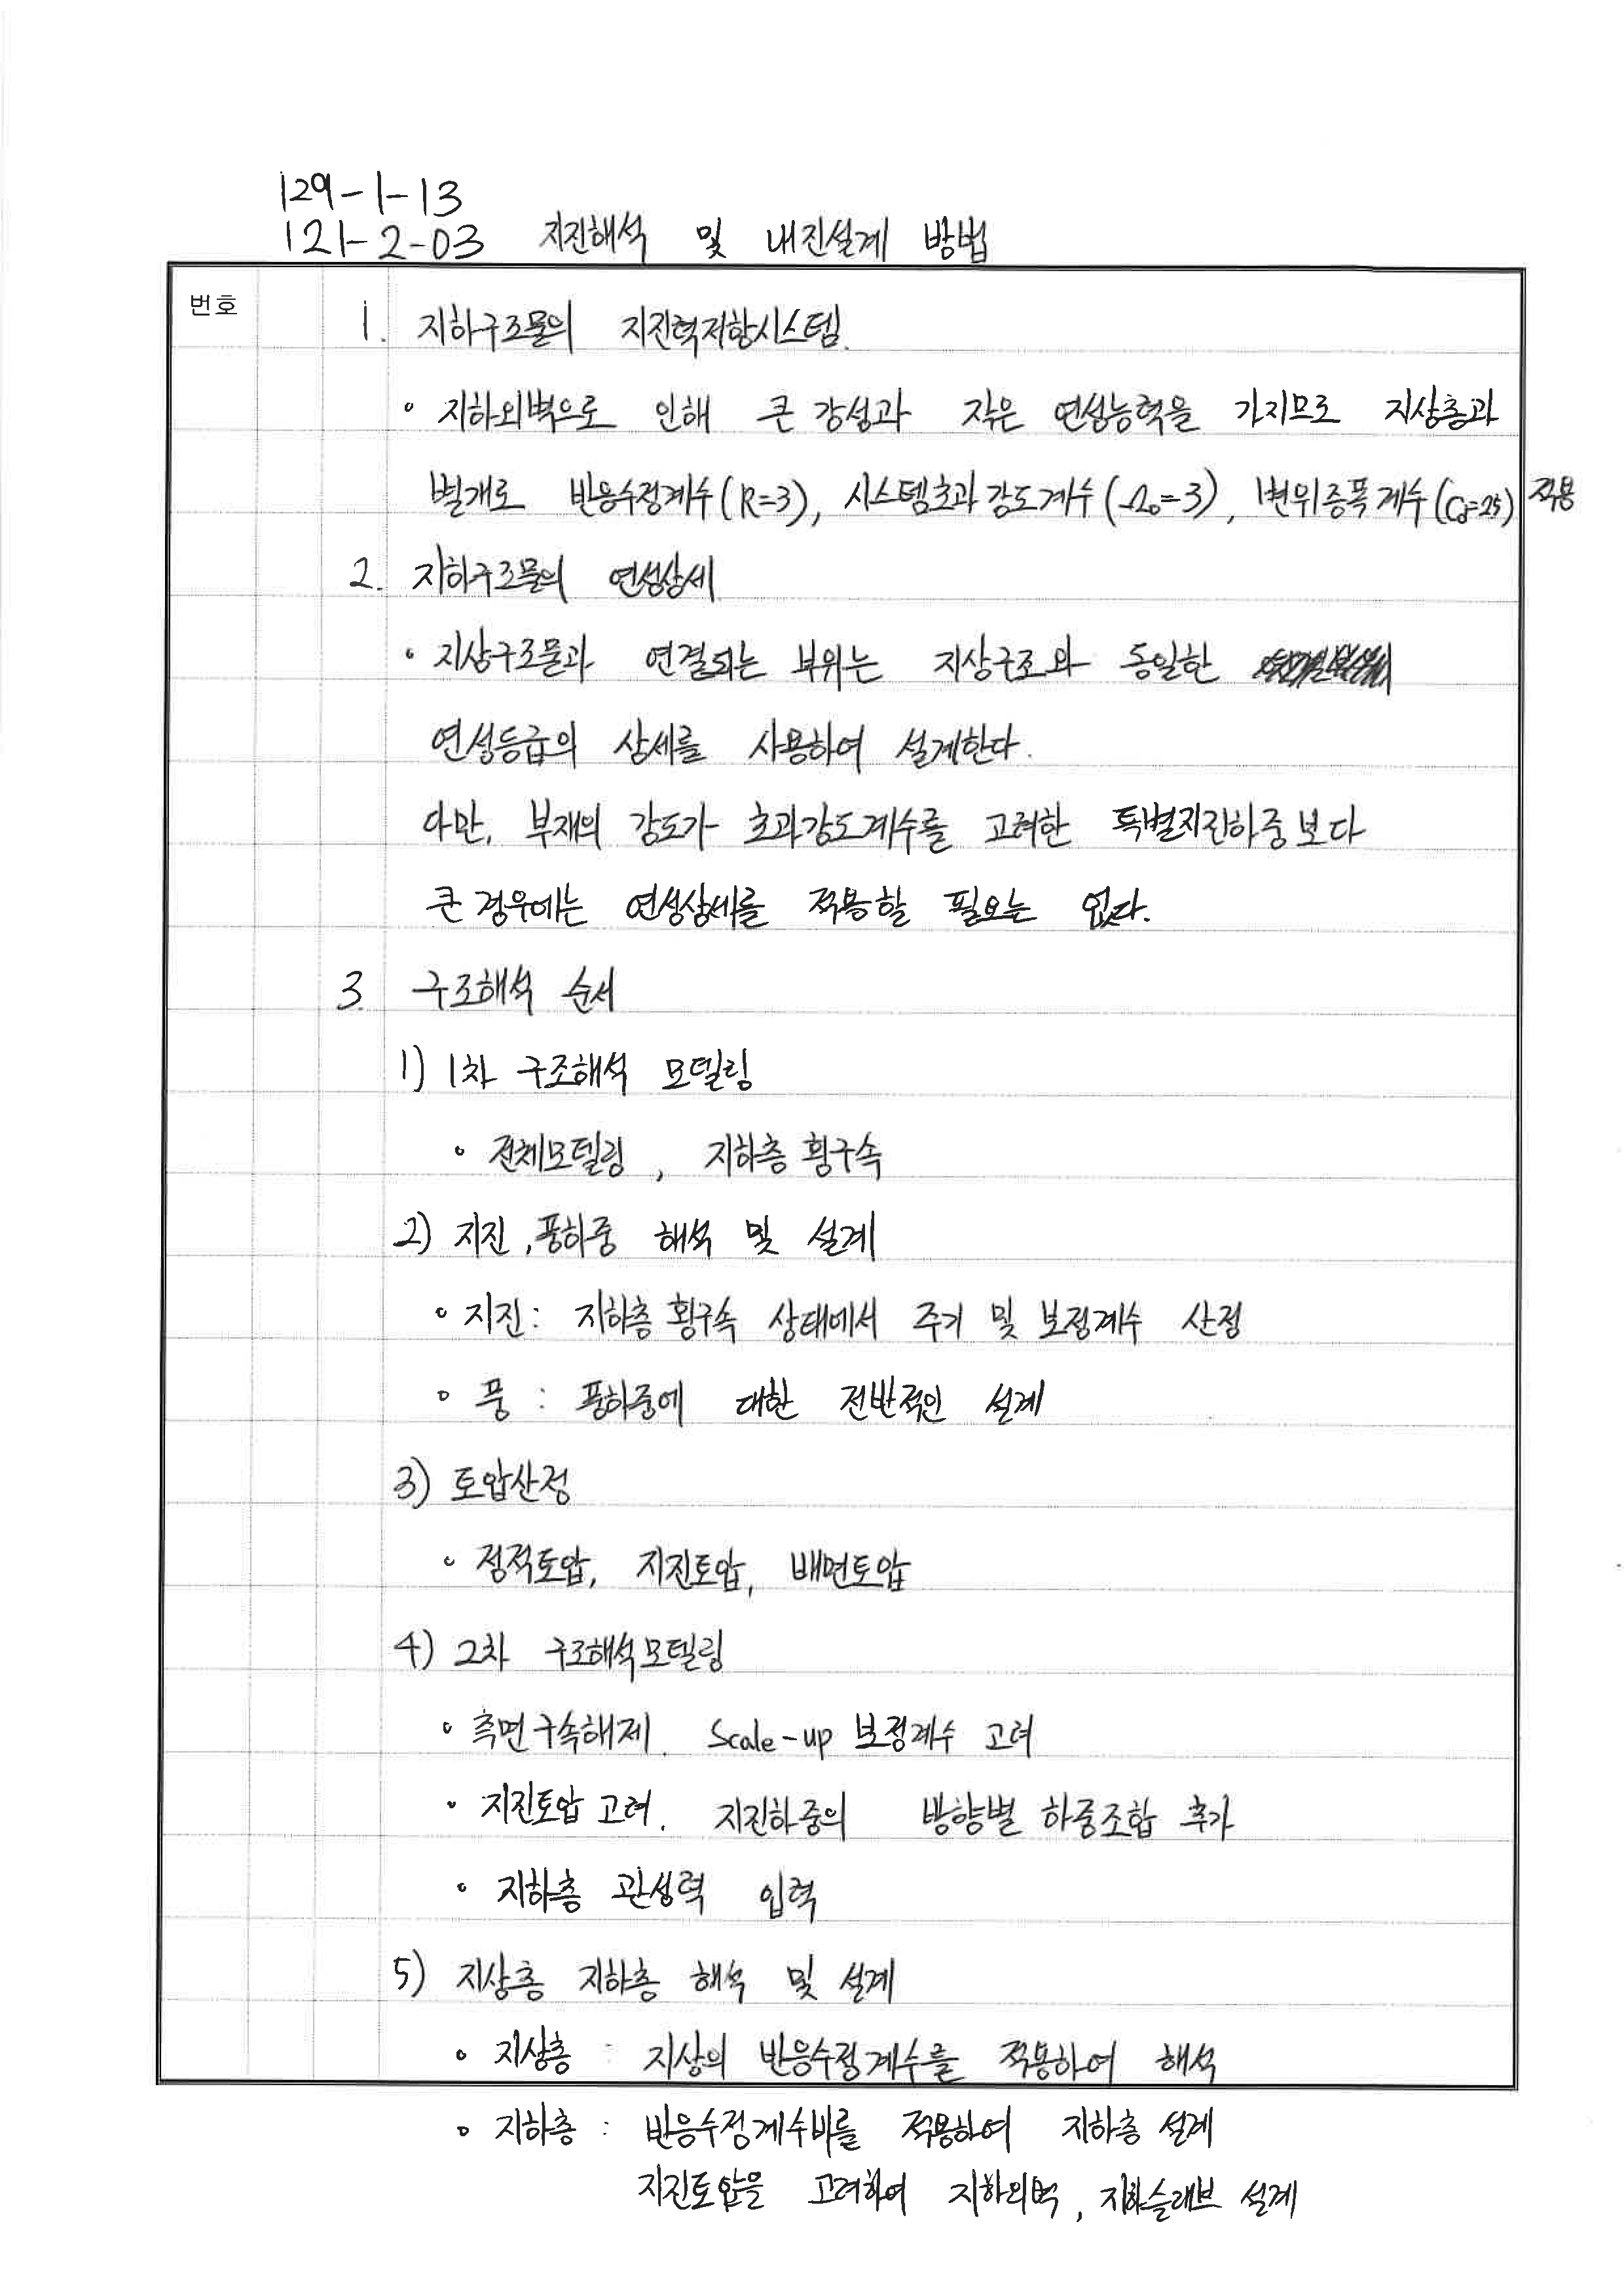 129-1-13
121-2-03 지진해석 및 내진설계 방법
번호
1. 지하구조물의 지진력저항시스템.
◦ 지하외벽으로 인해 큰 강성과 작은 연성능력을 가지므로 지상층과
별개로 반응수정계수(R=3), 시스템초과강도계수(Ω₀=3), 변위증폭계수(Cd=2.5) 적용
2. 지하구조물의 연성상세
◦ 지상구조물과 연결되는 부위는 지상구조와 동일한
연성등급의 상세를 사용하여 설계한다.
다만, 부재의 강도가 초과강도계수를 고려한 특별지진하중보다
큰 경우에는 연성상세를 적용할 필요는 없다.
3. 구조해석 순서
1) 1차 구조해석 모델링
◦ 전체모델링, 지하층 횡구속
2) 지진, 풍하중 해석 및 설계
◦ 지진: 지하층 횡구속 상태에서 주기 및 보정계수 산정
◦ 풍 : 풍하중에 대한 전반적인 설계
3) 토압산정
◦ 정적토압, 지진토압, 배면토압
4) 2차 구조해석모델링
◦ 측면구속해제. Scale-up 보정계수 고려
◦ 지진토압 고려. 지진하중의 방향별 하중조합 추가
◦ 지하층 관성력 입력
5) 지상층 지하층 해석 및 설계
◦ 지상층 : 지상의 반응수정계수를 적용하여 해석
◦ 지하층 : 반응수정계수비를 적용하여 지하층 설계
지진토압을 고려하여 지하외벽, 지하슬래브 설계